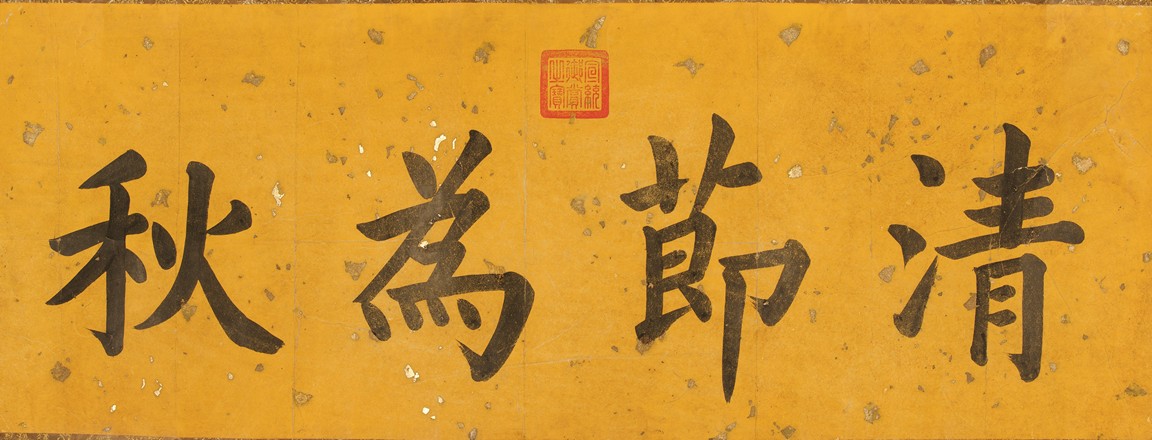 清莭為秋
宣統御賞之寶